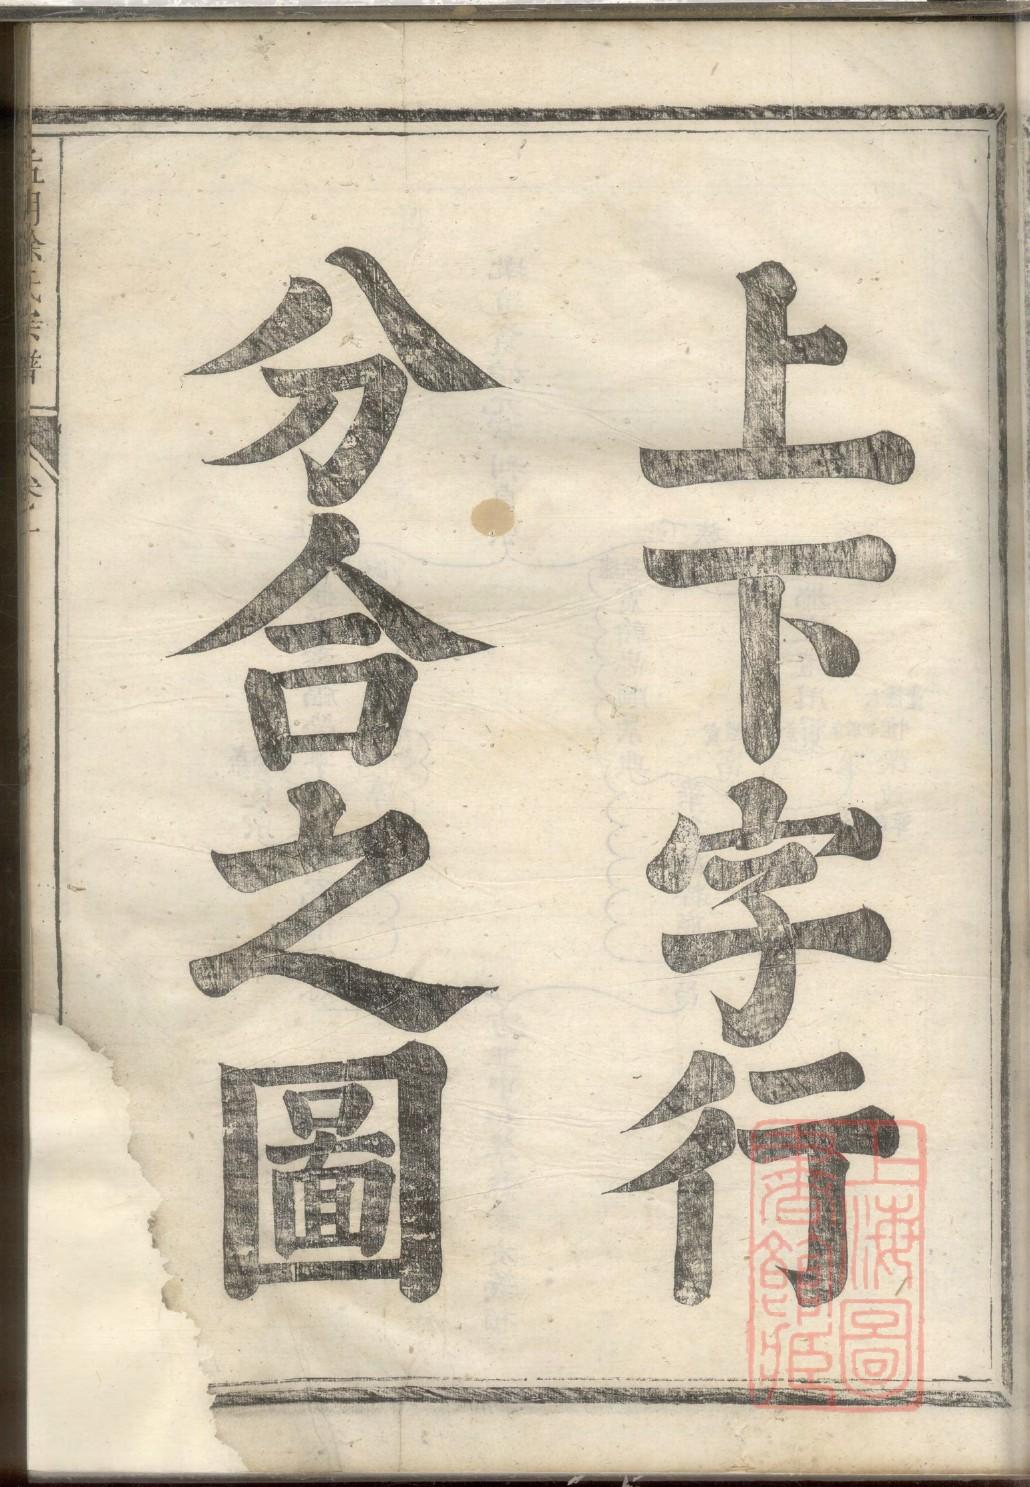 上下字行
分合之圖
上海圖
書館藏
氏宗譜